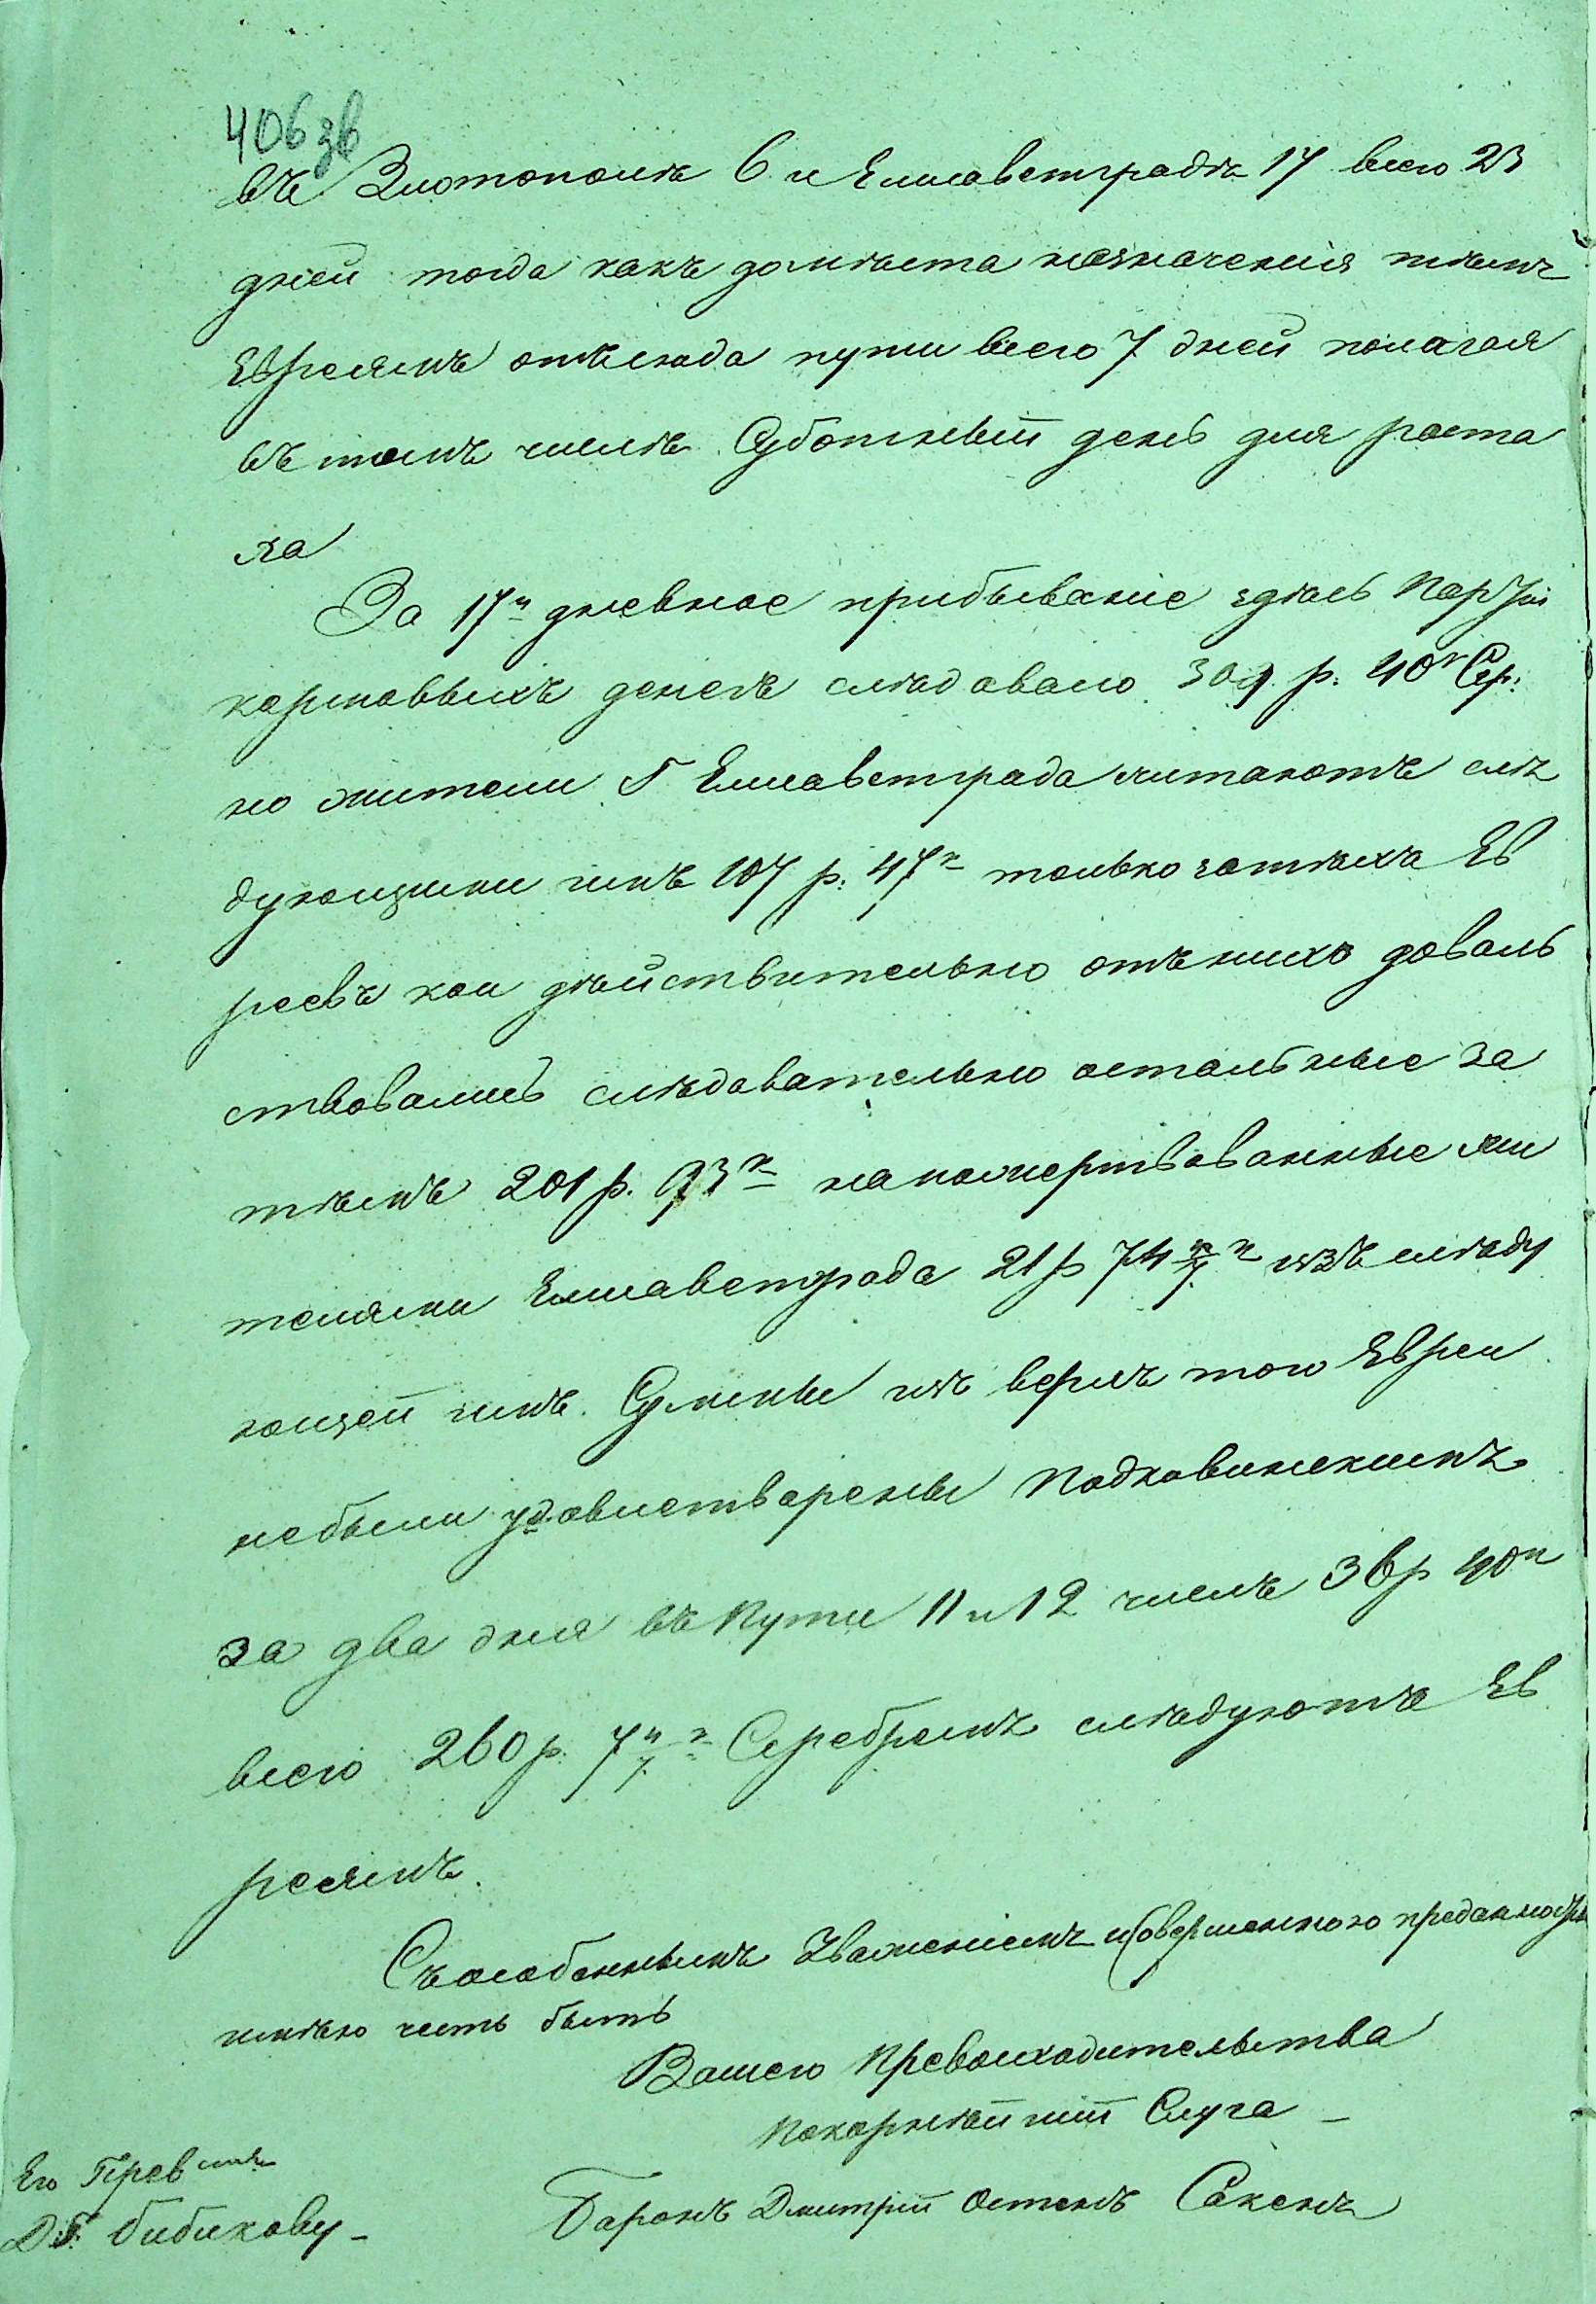 406 зв
въ Златополѣ 6 и Елисаветградѣ 17 всего 23
дней тогда какъ до мѣста назначенiя тѣмъ
Евреямъ отъ сюда пути всего 7 дней полагая
въ томъ числѣ Суботный день для раста
ха
За 17и дневное прибыванiе здѣсь Партiи
кормовыхъ денегъ слѣдовало 309 р. 40 к Сер:
но жители Г Елисаветграда читаютъ слѣ
дующими имъ 107 р: 47 к только за тѣхъ Ев
реевъ кои дѣйствительно отъ нихъ доволь
ствовались слѣдовательно остальные за
тѣмъ 201 р. 93 к на пожертвованные жи
телями Елисаветграда 21 р 74 4/7 к изъ слѣду
ющей имъ Суммы из верхъ того Евреи
небыли удовлетворены Подковинскимъ
за два дня въ Пути 11 и 12 числъ 36 р 40 к
всего 260 р. 7 4/7 к Серебромъ слѣдуютъ Ев
реямъ.
Съ особеннымъ Уваженiемъ и Совершенною преданностью
имѣю честь быть
Вашего Превосходительства
Покорнѣйшiй Слуга
Баронъ Дмитрiй Остенъ Сакенъ
Его Превству
Д. Г. Бибикову